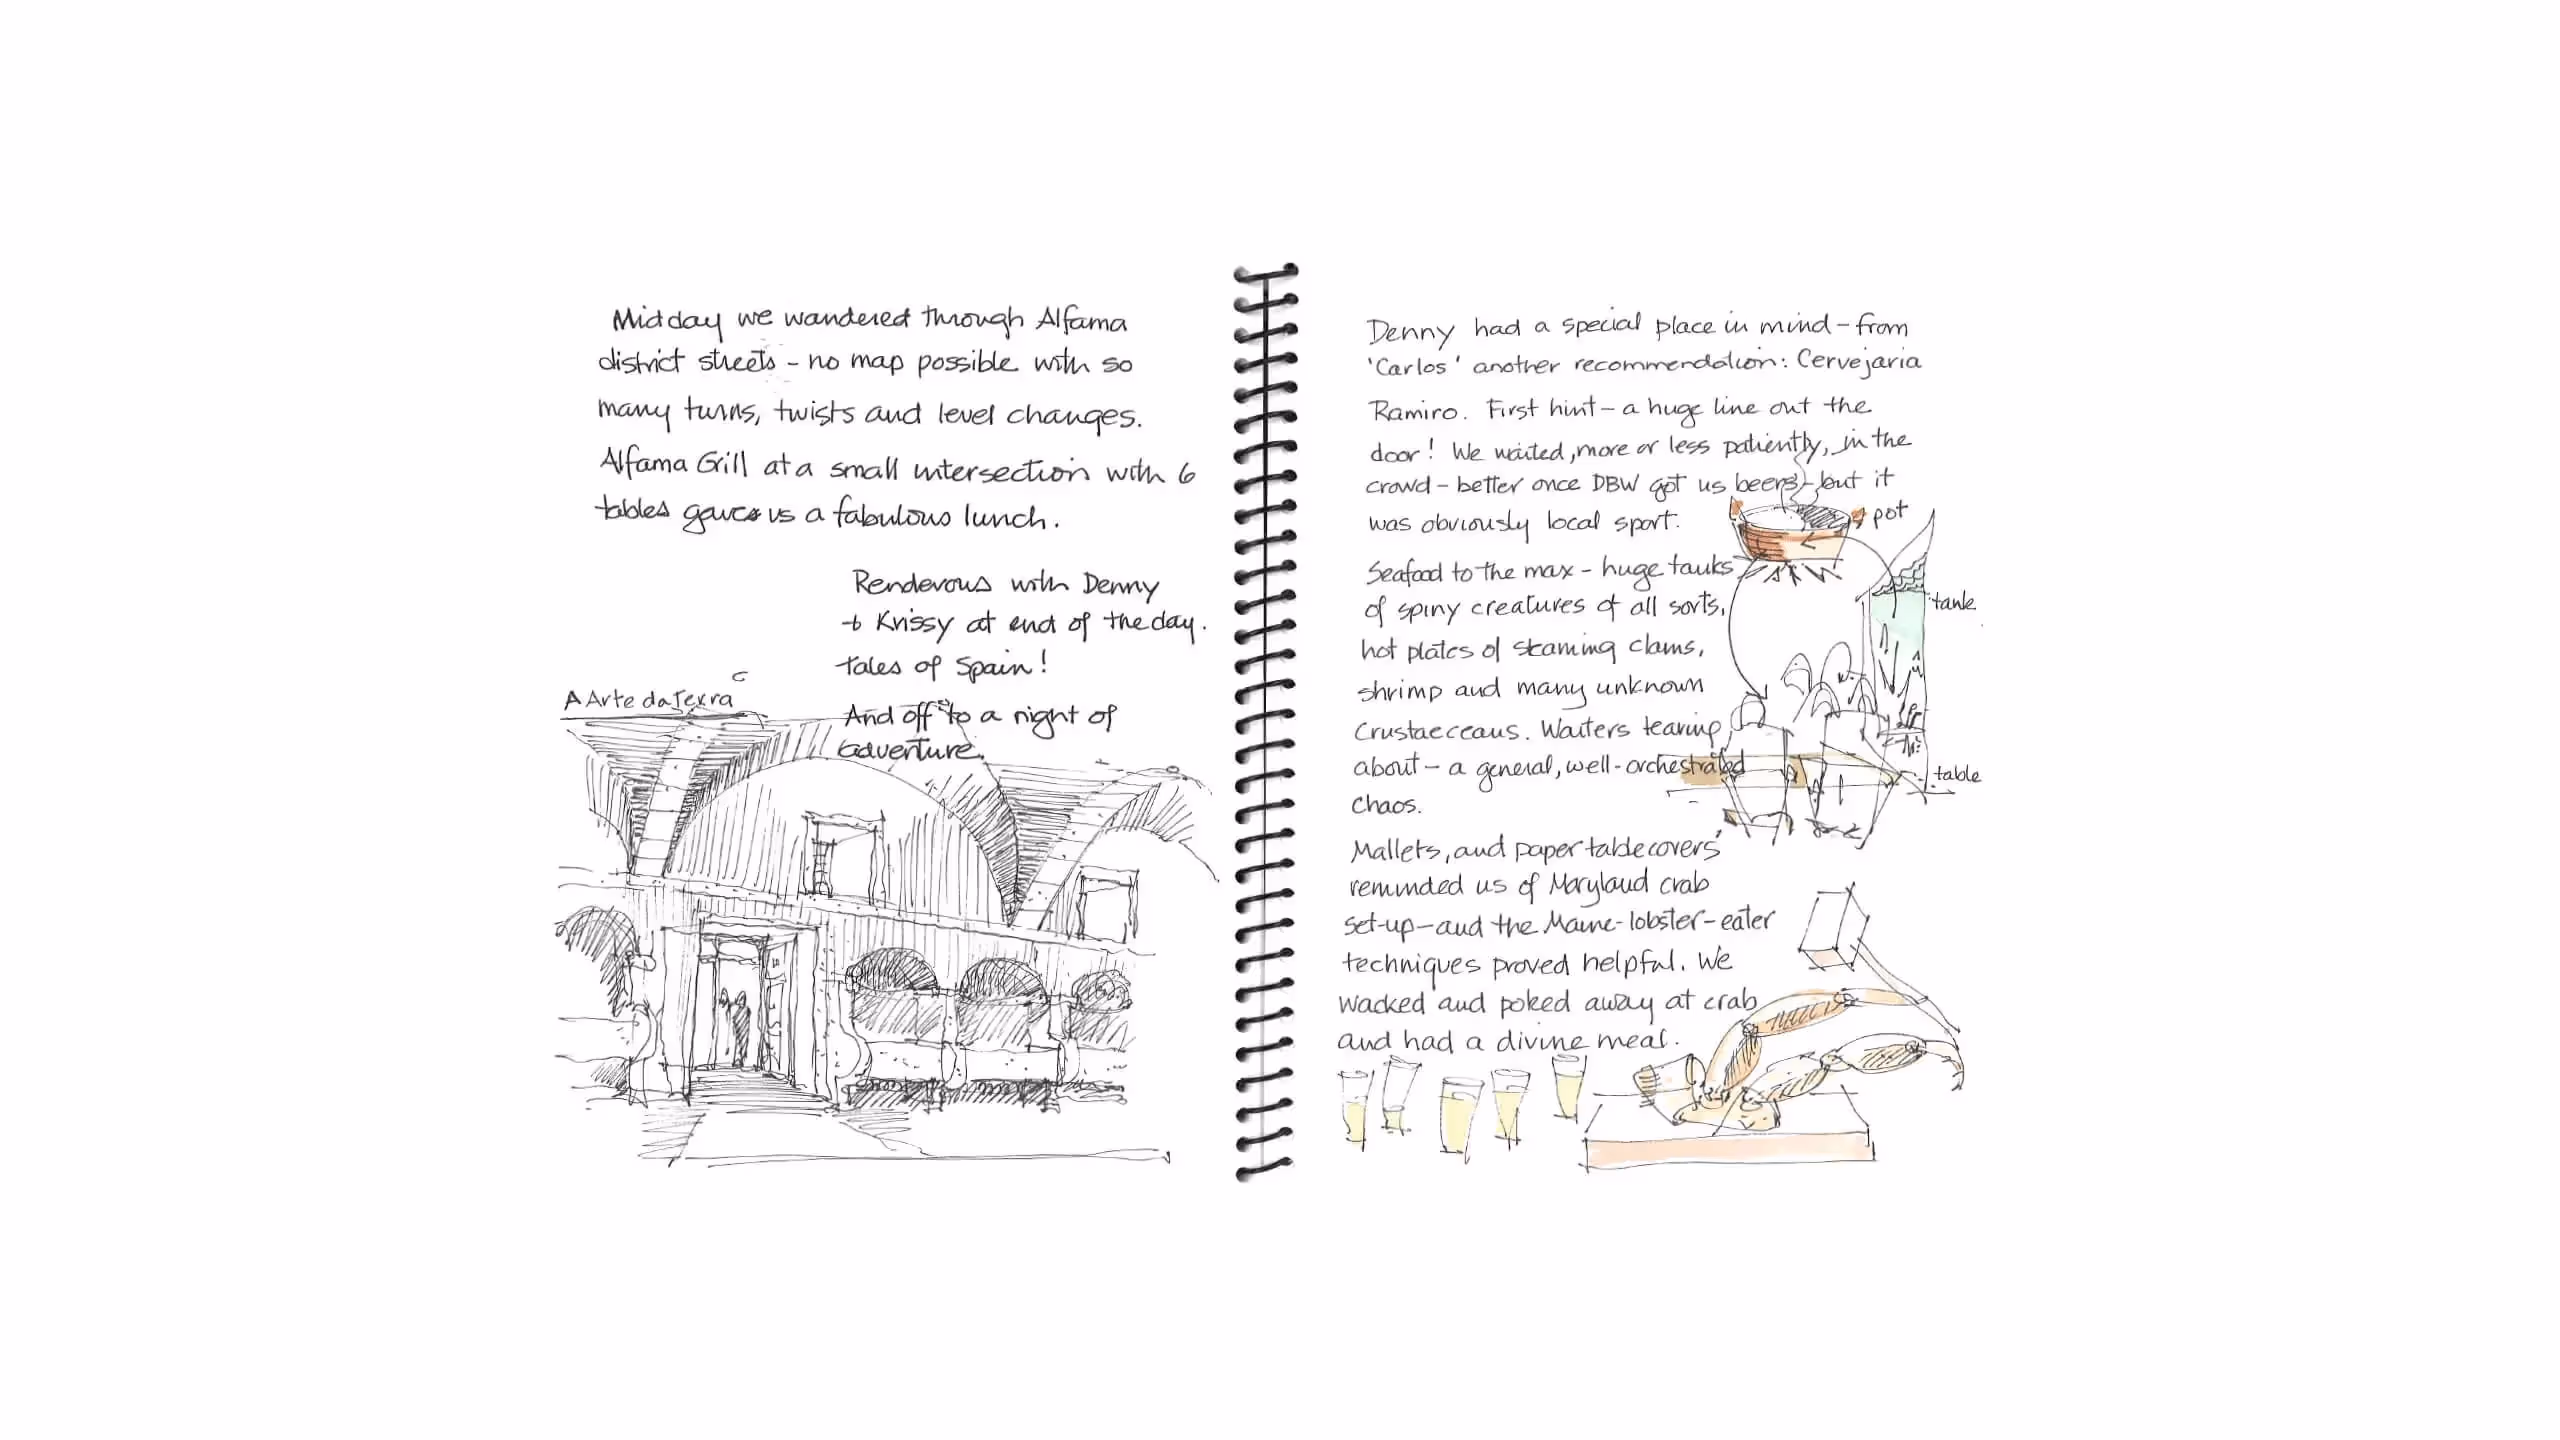 Midday we wandered through Alfama
district streets - no map possible with so
many turns, twists and level changes.
Alfama Grill at a small intersection with 6
tables gave us a fabulous lunch.
Rendevous with Denny
+ Krissy at end of the day.
tales of Spain!
And off to a night of
adventure.
A Arte da Terra
Denny had a special place in mind - from
'Carlos' another recommendation: Cervejaria
Ramiro. First hint - a huge line out the
door! We waited, more or less patiently, in the
crowd - better once DBW got us beers - but it
was obviously local sport.
pot
Seafood to the max - huge tanks
of spiny creatures of all sorts,
tank
hot plates of steaming clams,
shrimp and many unknown
Crustaeceans. Waiters tearing
about - a general, well-orchestrated
table
chaos.
Mallets, and paper table covers
reminded us of Maryland crab
set-up - and the Maine-lobster-eater
techniques proved helpful. We
wacked and poked away at crab
and had a divine meal.